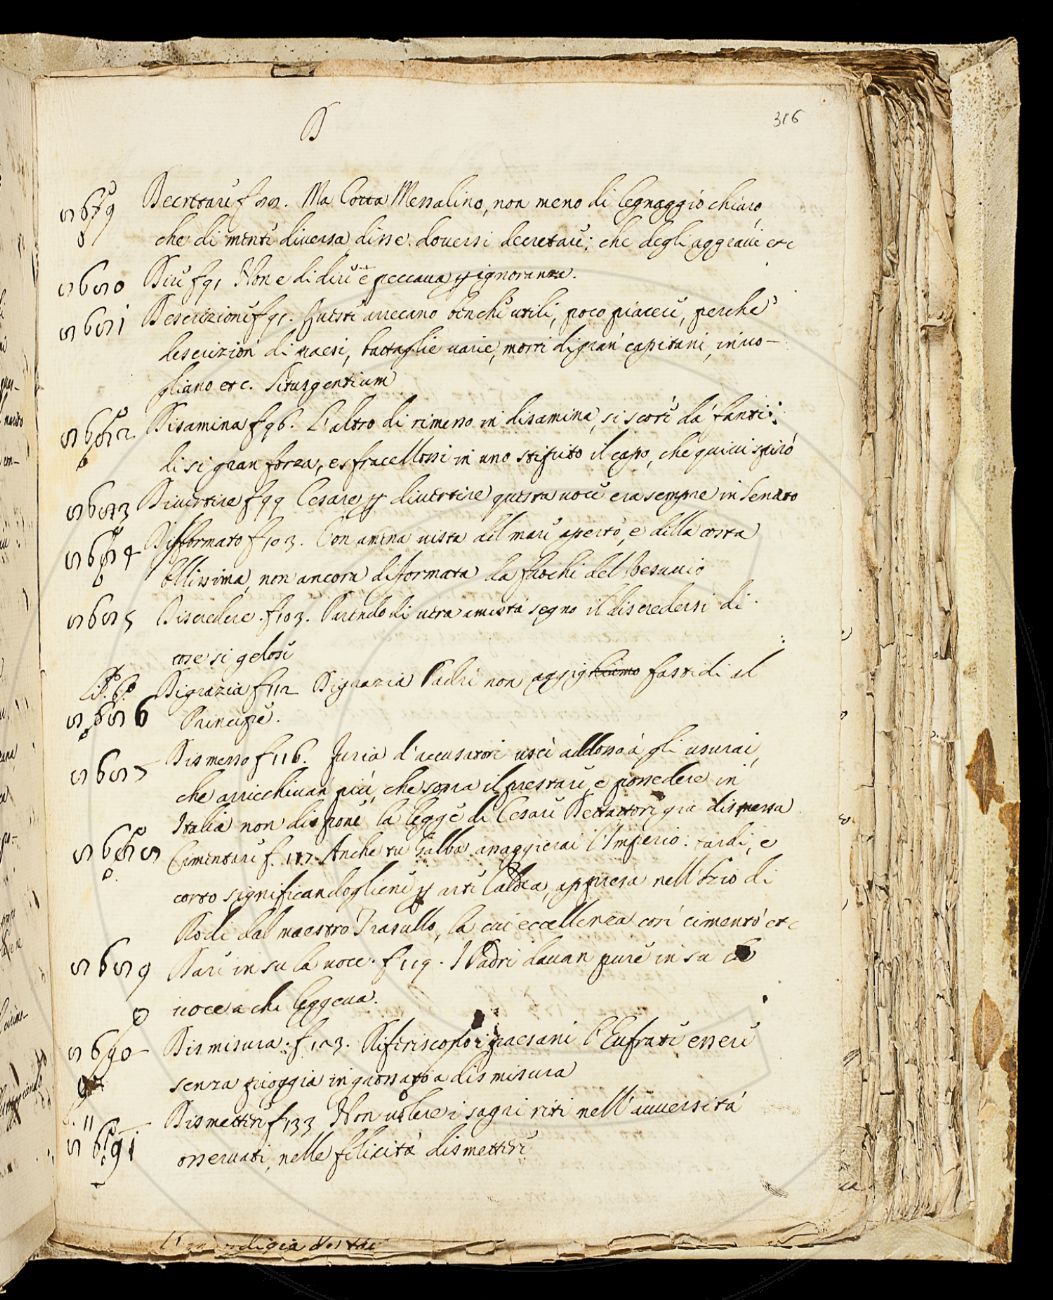 D
316
5679 Decretare f 90. Ma Cotta Messalino, non meno di legnaggio chiaro,
che di mente diversa, disse, doversi decretare; che degli aggravi etc
5680 Dire f 91 Non è di dire è peccava per ignoranza.
5681 Descrizioni f 91. Queste arrecano benché utili, poco piacere, perché
descrizioni di paesi, battaglie varie, morti di gran capitani, invo-
gliano etc. Situs gentium
5682 Disamina f 96. L'altro di rimesso in disamina, si scorì da fanti:
di si gran forza, e sfracellossi in uno stipito il capo, che quivi spirò
5683 Divertire f 99 Cesare per divertire questa voce era sempre in Senato
5684 Difformato f 103. Con amena vista del mare aperto, e della costa
bellissima, non ancora difformata da fuochi del Vesuvio
5685 Discredere f 103. Parendo di vera amistà segno il discredersi di
cose si gelose
5686 Disgrazia f 112 Disgrazia Padri non fastidi il
Principe.
5687 Dismesso f 116. Furia d'accusatori uscì addosso a gli usurai,
che arricchivan più, che sopra il prestare, e possedere in
Italia non dispone la legge di Cesare Dettatore già dismessa
5688 Cimentare f. 117. Anche tu Galba assaggierai l'Imperio: tardi, e
corto significandogliene per arte Caldea, appresa nell'Ozio di
Rodi dal maestro Trasullo, la cui eccellenza così cimentò etc
5689 Dare in su la voce. f 119. I Padri davan pure in su la
voce a chi leggeva.
5690 Dismisura. f 123. Riferiscono i paesani l'Eufrate essere
senza pioggia ingrossato a dismisura
5691 Dismettere f 133 Non volere i sagri riti nell'avversità
osservati, nelle felicità dismettere